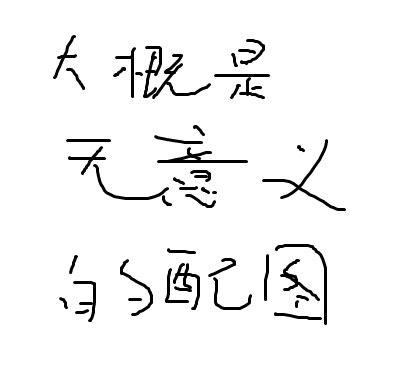 大概是
无意义
的配图